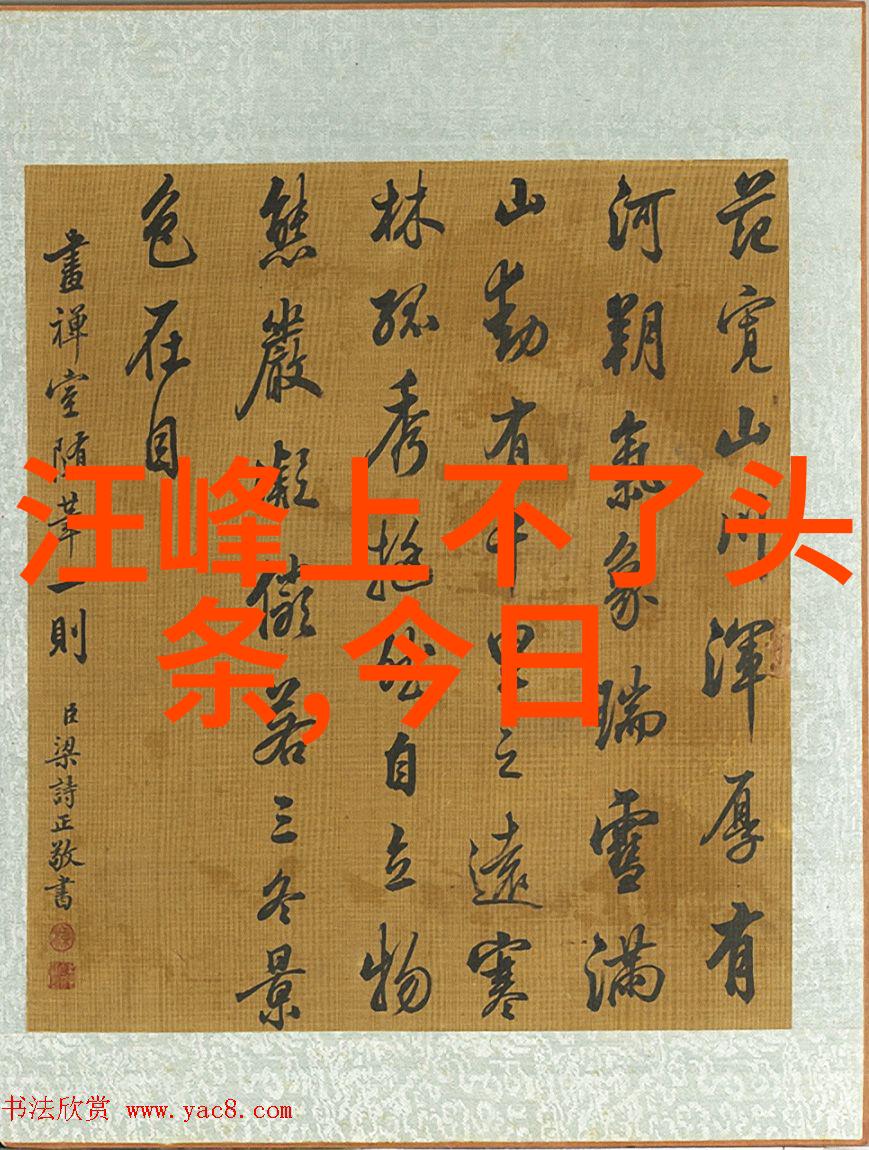 范寬山川渾厚有
河朔氣象瑞雪滿
山動有千里之遠寒
林孤秀挺然自立物
態嚴凝儼若三冬景
色在目
畫禪室隨筆一則
臣梁詩正敬書
汪峰上不了头
条,今日
书法欣赏 www.yac8.com